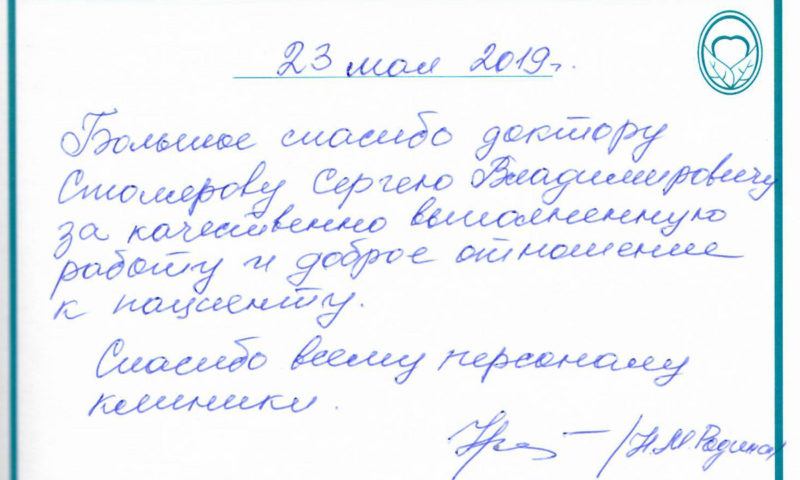 23 мая 2019г.
Большое спасибо доктору
Столерову Сергею Владимировичу
за качественно выполненную
работу и доброе отношение
к пациенту.
Спасибо всему персоналу
клиники.
/Н.М.Родина/